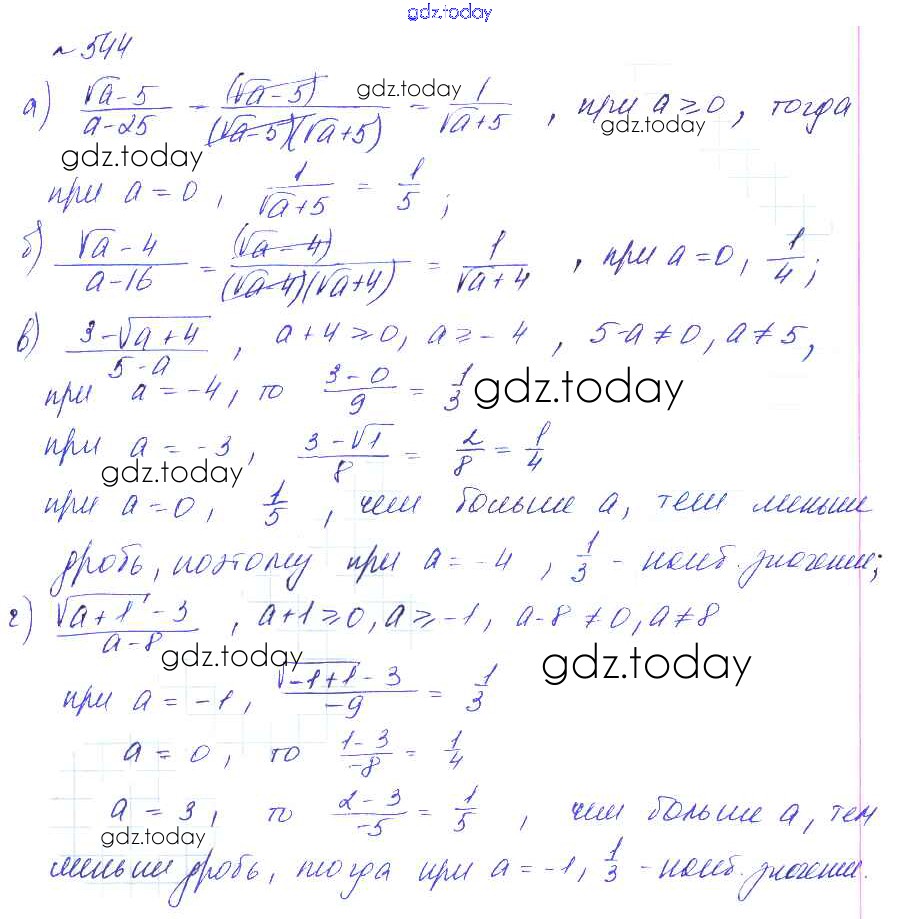 gdz.today
№ 544
а) (√a - 5)/(a - 25) = (√a - 5)/((√a - 5)(√a + 5)) = 1/(√a + 5) , при a ≥ 0, тогда
gdz.today
gdz.today
gdz.today
при a = 0, 1/(√a + 5) = 1/5 ;
б) (√a - 4)/(a - 16) = (√a - 4)/((√a - 4)(√a + 4)) = 1/(√a + 4) , при a = 0, 1/4 ;
в) (3 - √(a + 4))/(5 - a) , a + 4 ≥ 0, a ≥ - 4 , 5 - a ≠ 0, a ≠ 5,
при a = -4, то (3 - 0)/9 = 1/3
gdz.today
при a = -3, (3 - √1)/8 = 2/8 = 1/4
gdz.today
при a = 0, 1/5 , чем больше a, тем меньше
дробь, поэтому при a = -4 , 1/3 - наиб. значение;
г) (√(a + 1) - 3)/(a - 8) , a + 1 ≥ 0, a ≥ -1, a - 8 ≠ 0, a ≠ 8
gdz.today
gdz.today
при a = -1, (√(-1+1) - 3)/(-9) = 1/3
a = 0, то (1 - 3)/(-8) = 1/4
a = 3, то (2 - 3)/(-5) = 1/5 , чем больше a, тем
gdz.today
меньше дробь, тогда при a = -1, 1/3 - наиб. значение.